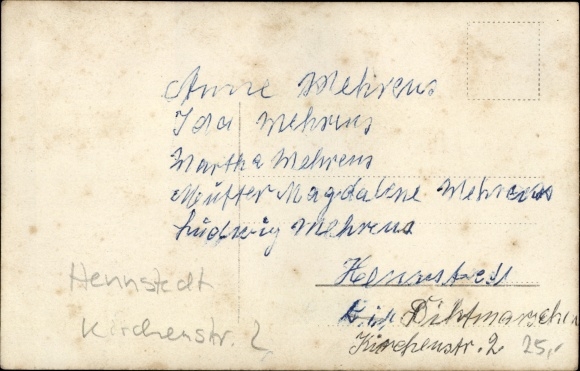 Anne Mehrens
Ida Mehrens
Martha Mehrens
Mutter Magdalene Mehrens
Ludwig Mehrens
Hennstedt
Dithmarschen
Kirchenstr. 2
25,-
Hennstedt
Kirchenstr. 2